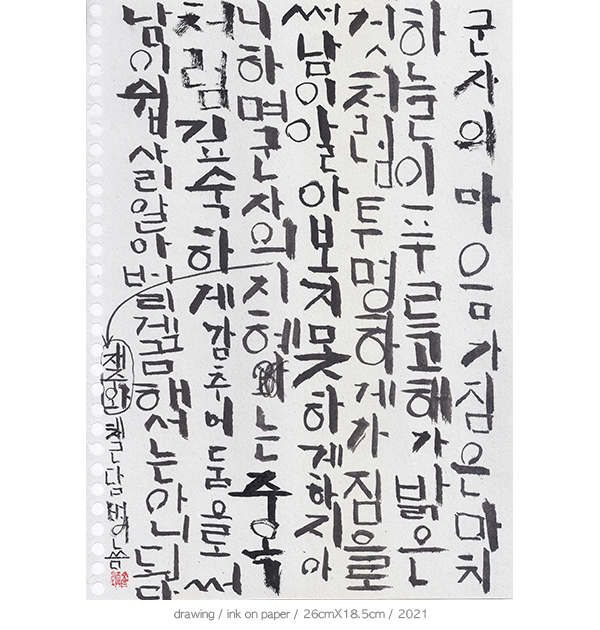 군자의 마음가짐은 마치
하늘이 푸르고 해가 밝은
것처럼 투명하게 가짐으로
써 남이 알아보지 못하게 하지 아
니하며 군자의 지혜는 주옥
처럼 깊숙하게 감추어 둠으로써
남이 쉽사리 알아버리게끔 해서는 아니 된다
재주와 채근담 씀
drawing / ink on paper / 26cmX18.5cm / 2021